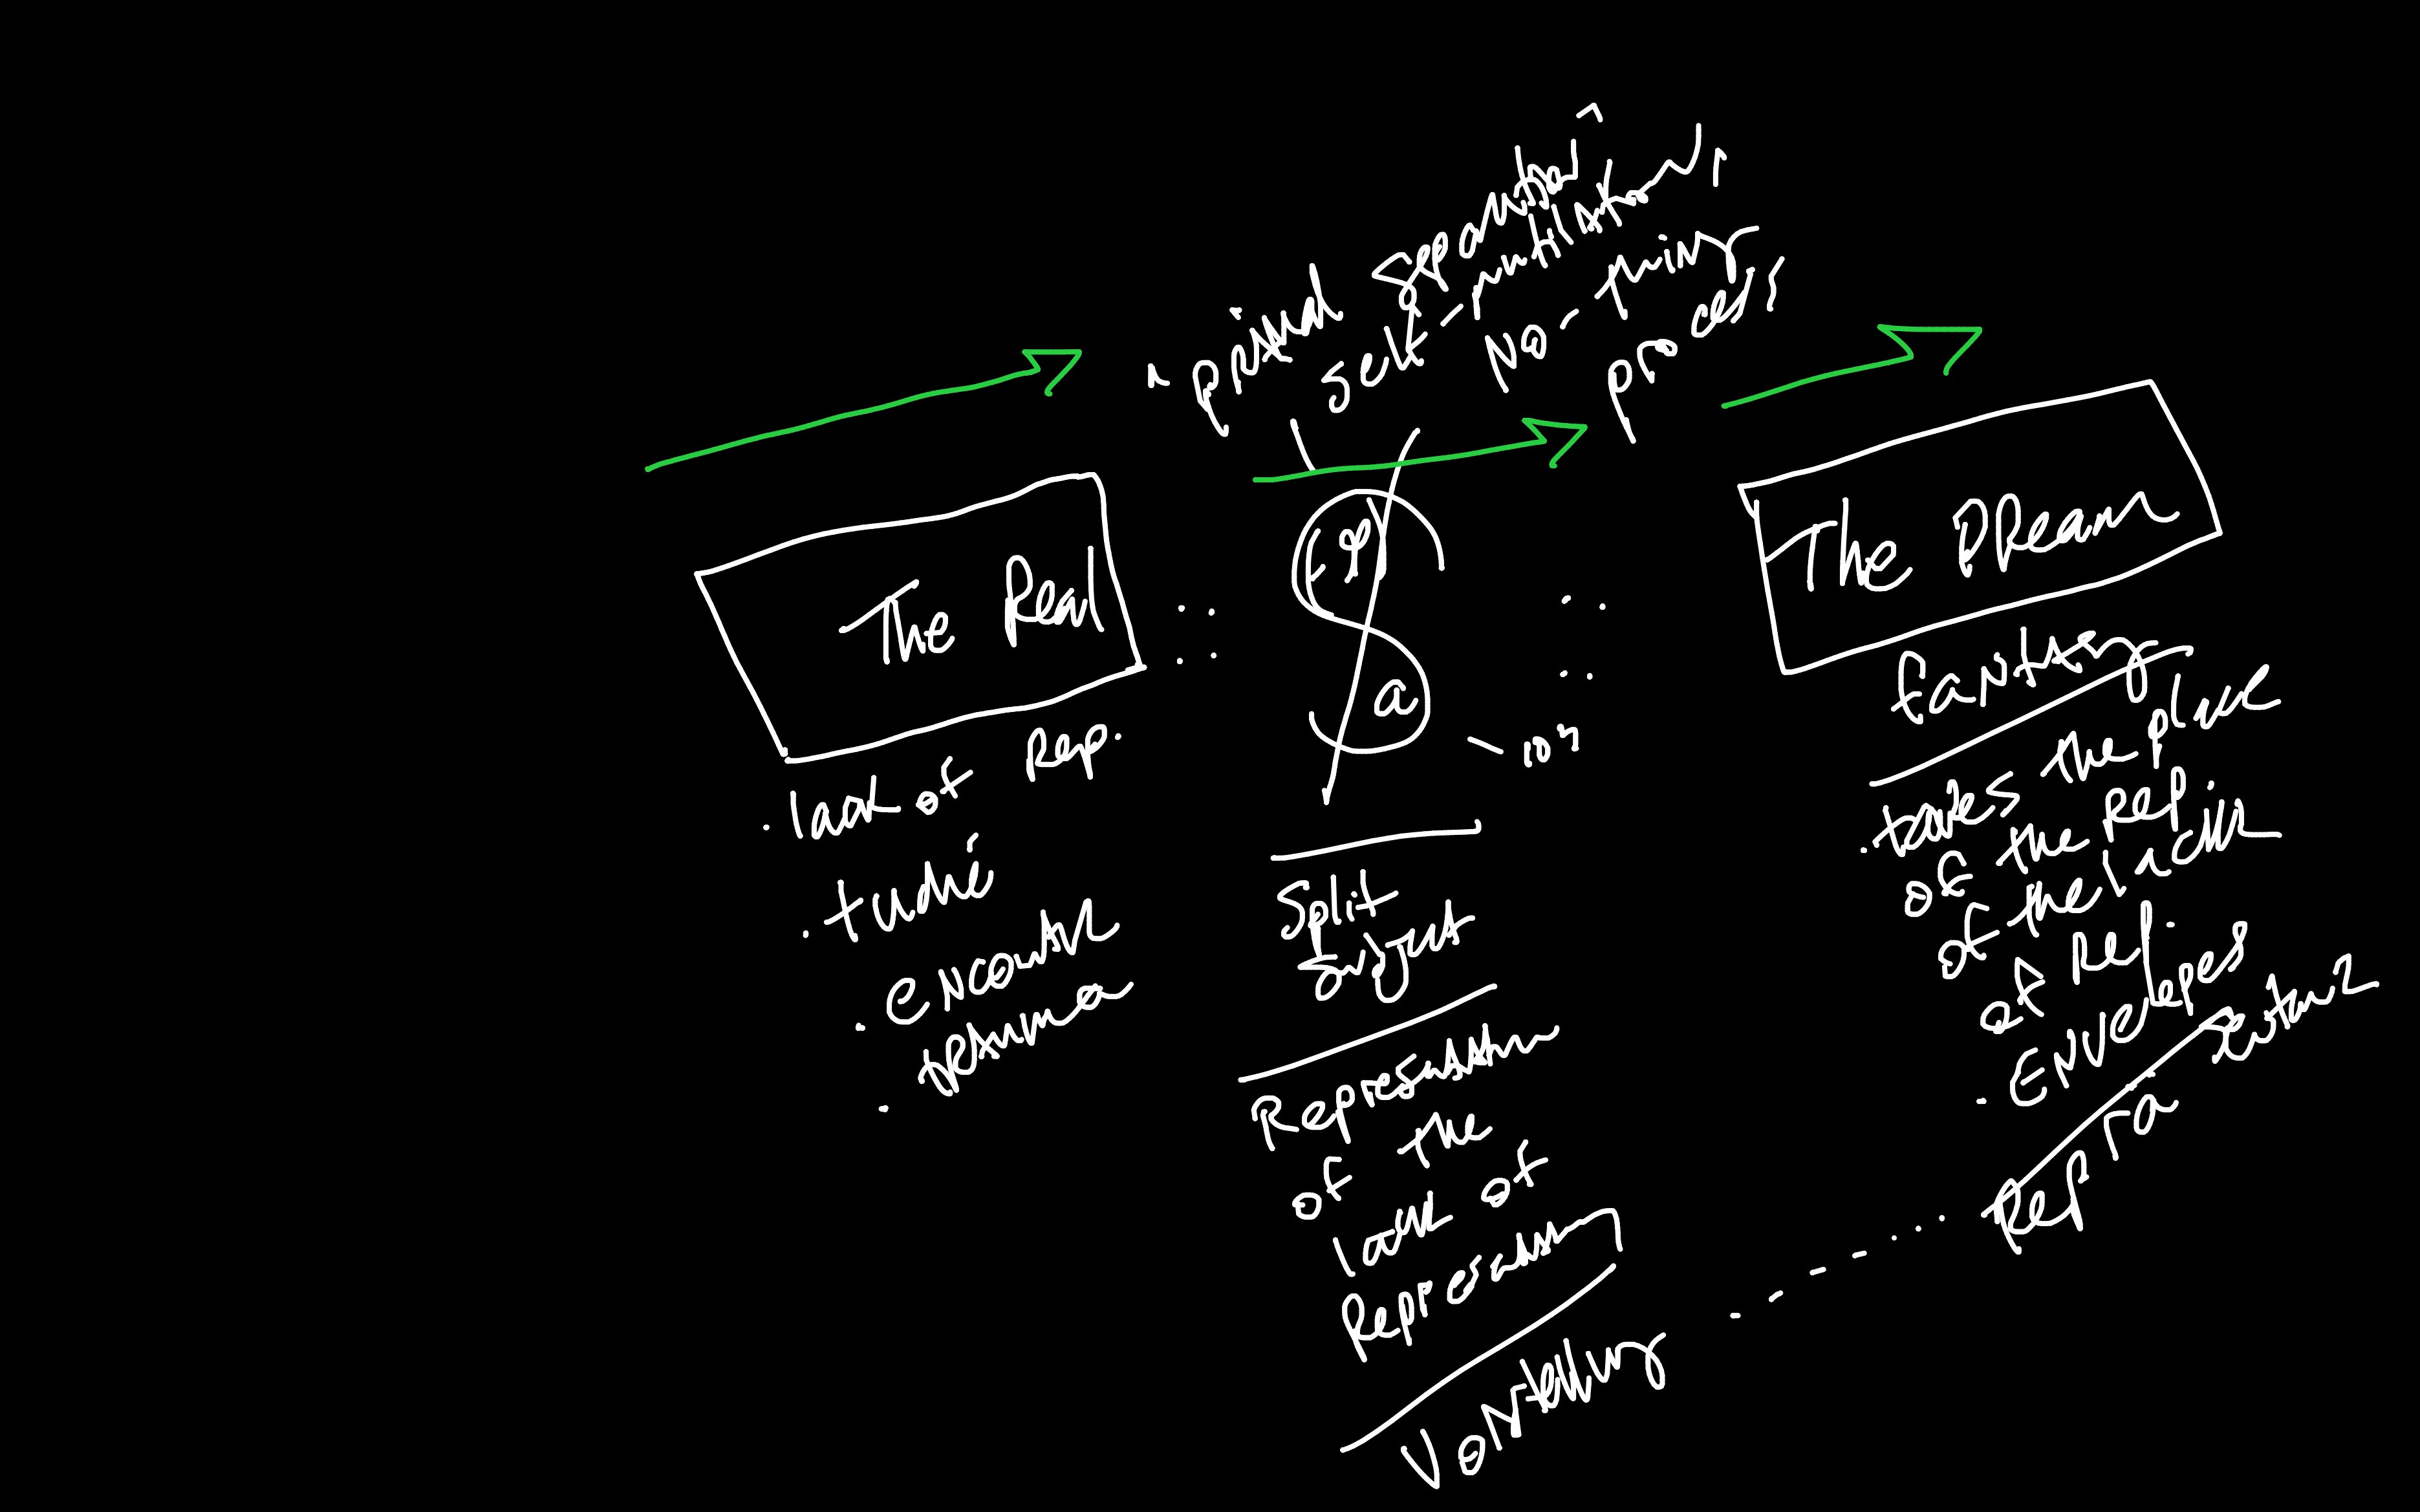 primal Separation,
self-mutilation,
No-thing
process
The Real
• lack of Rep.
• tuché
• encounter
• trauma
(φ)
$
a
Split
Subject
Representation
of the
lack of
Representation
Vorstellung
The Dream
Fantasy
• takes the place
of the Rep
of the lack
of Rep.
• Envelopes
Rep